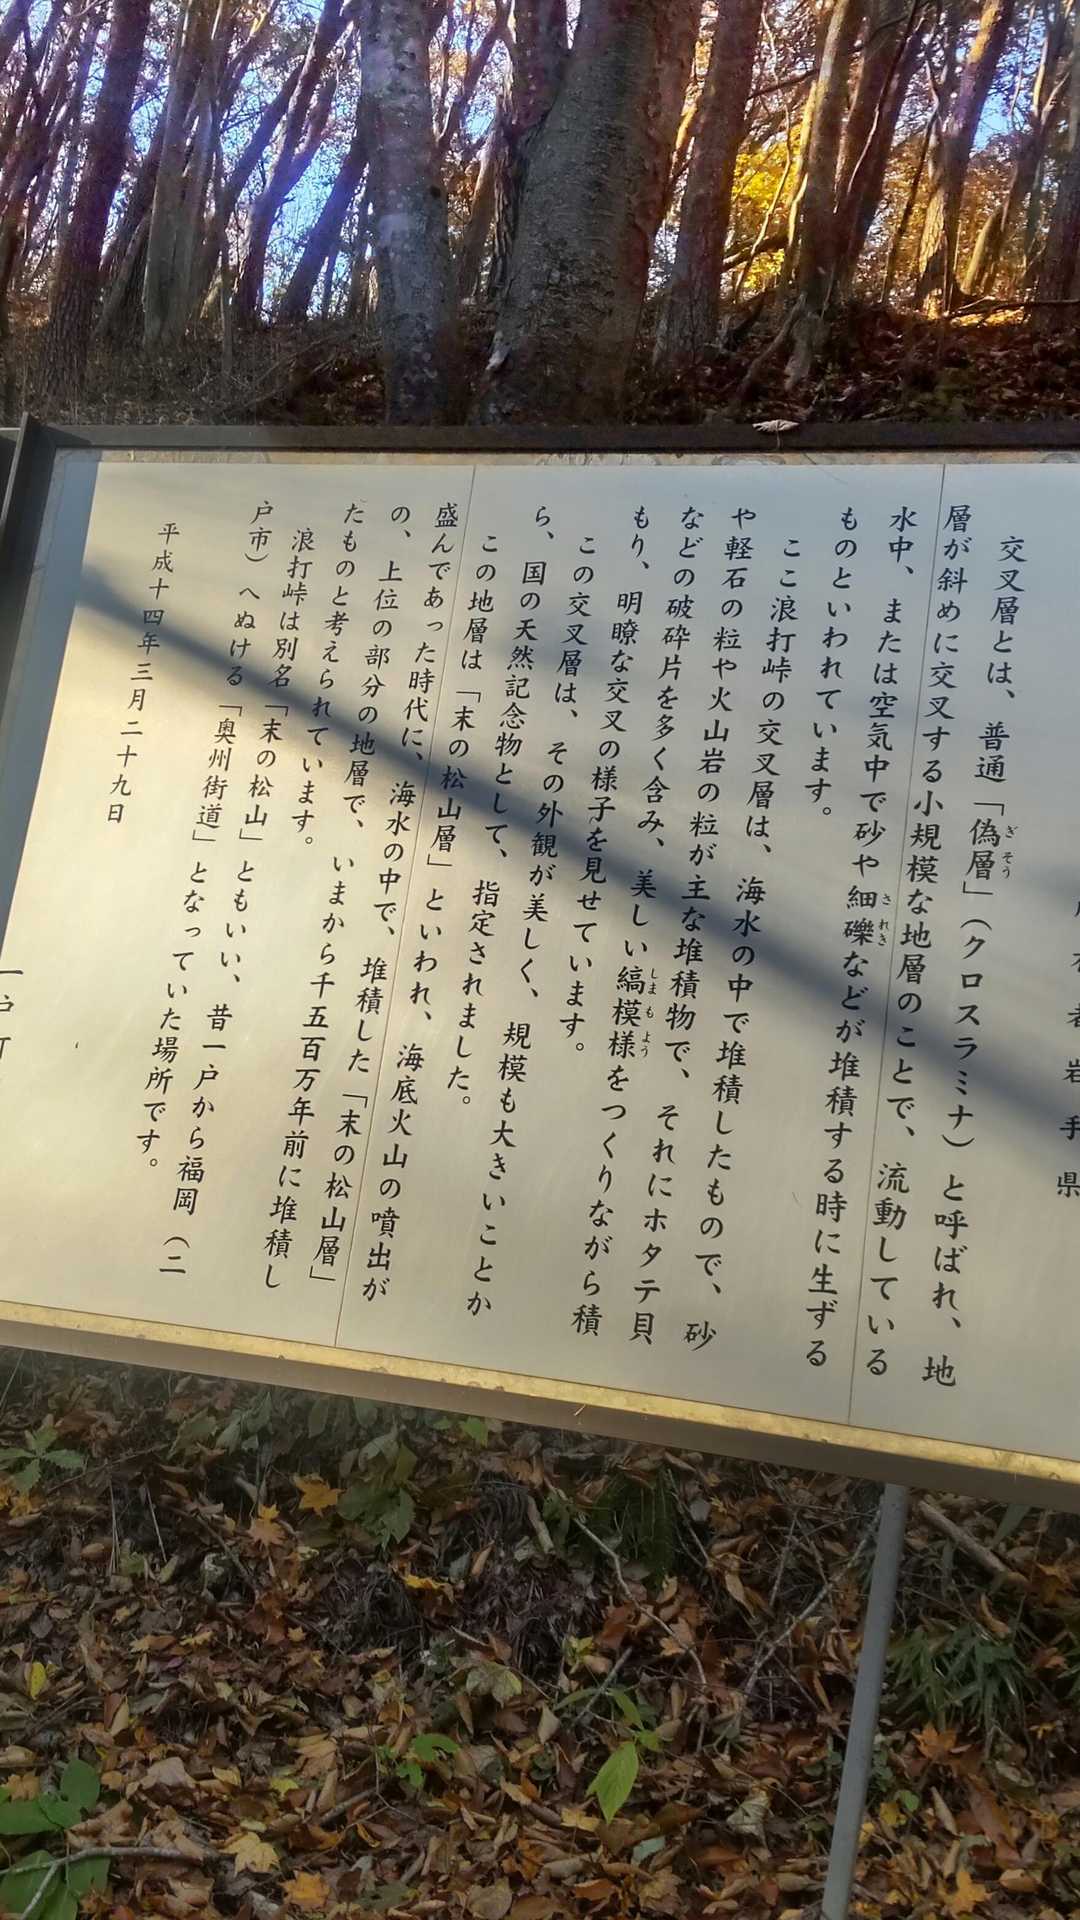 岩手県
交叉層とは、普通「偽層」（クロスラミナ）と呼ばれ、地
層が斜めに交叉する小規模な地層のことで、流動している
水中、または空気中で砂や細礫などが堆積する時に生ずる
ものといわれています。
ここ浪打峠の交叉層は、海水の中で堆積したもので、砂
や軽石の粒や火山岩の粒が主な堆積物で、それにホタテ貝
などの破砕片を多く含み、美しい縞模様をつくりながら積
もり、明瞭な交叉の様子を見せています。
この交叉層は、その外観が美しく、規模も大きいことか
ら、国の天然記念物として、指定されました。
この地層は「末の松山層」といわれ、海底火山の噴出が
盛んであった時代に、海水の中で、堆積した「末の松山層」
の、上位の部分の地層で、いまから千五百万年前に堆積し
たものと考えられています。
浪打峠は別名「末の松山」ともいい、昔一戸から福岡（二
戸市）へぬける「奥州街道」となっていた場所です。
平成十四年三月二十九日
一戸町